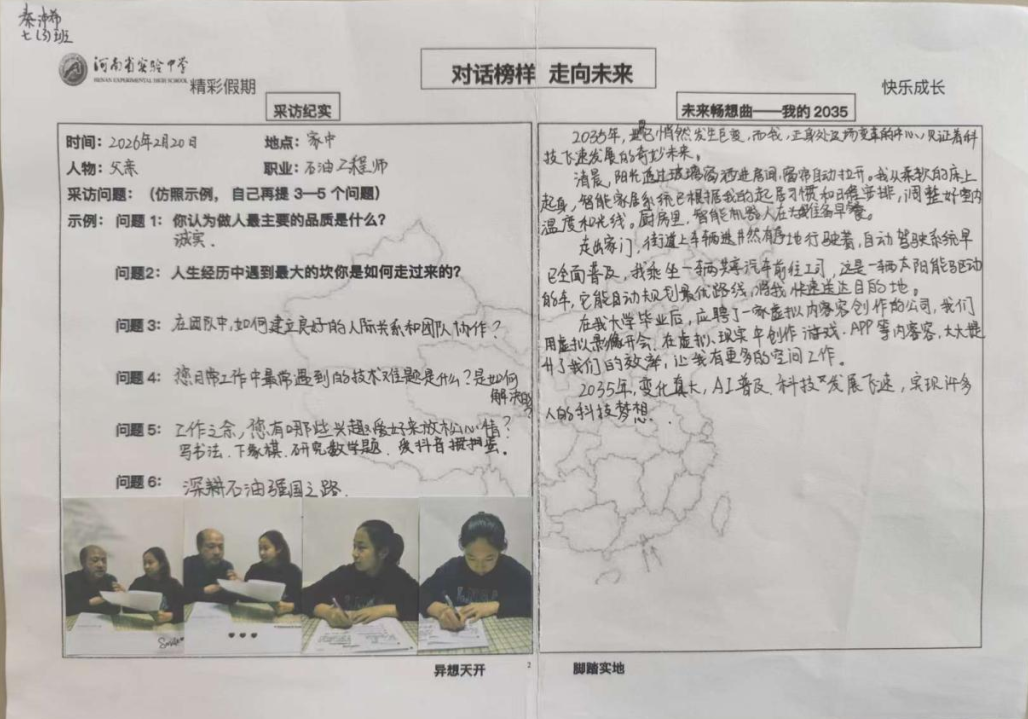 秦
七(3)班
河南省实验中学
HENAN EXPERIMENTAL HIGH SCHOOL
精彩假期
对话榜样 走向未来
快乐成长
采访纪实
时间：2026年2月20日 地点：家中
人物：父亲 职业：石油工程师
采访问题：（仿照示例，自己再提 3—5 个问题）
示例：问题 1：你认为做人最主要的品质是什么？
诚实.
问题2：人生经历中遇到最大的坎你是如何走过来的？
问题 3：在团队中,如何建立良好的人际关系和团队协作？
问题 4：您日常工作中最常遇到的技术难题是什么？是如何
解决的
问题 5：工作之余,您有哪些兴趣爱好来放松心情？
写书法.下象棋.研究数学题.
问题 6：深耕石油强国之路.
未来畅想曲——我的 2035
2035年,已悄然发生巨变,而我,正身处这场变革的中心,见证着科
技飞速发展的奇妙未来。
清晨,阳光透过玻璃窗洒进房间,窗帘自动拉开。我从柔软的床上
起身,智能家居系统已根据我的起居习惯和日程安排,调整好室内
温度和光线。厨房里,智能机器人在准备早餐。
走出家门,街道上车辆井然有序地行驶着,自动驾驶系统早
已全面普及,我乘坐一辆共享汽车前往公司,这是一辆太阳能驱动
的车,它能自动规划最优路线,将我快速送达目的地。
在我大学毕业后,应聘了一家虚拟内容创作的公司,我们
用虚拟影像开会,在虚拟现实中创作游戏.APP等内容,大大提
升了我们的效率,让我有更多的空间工作。
2035年,变化真大,AI普及.科技发展飞速,实现许多
人的科技梦想.
异想天开
2
脚踏实地